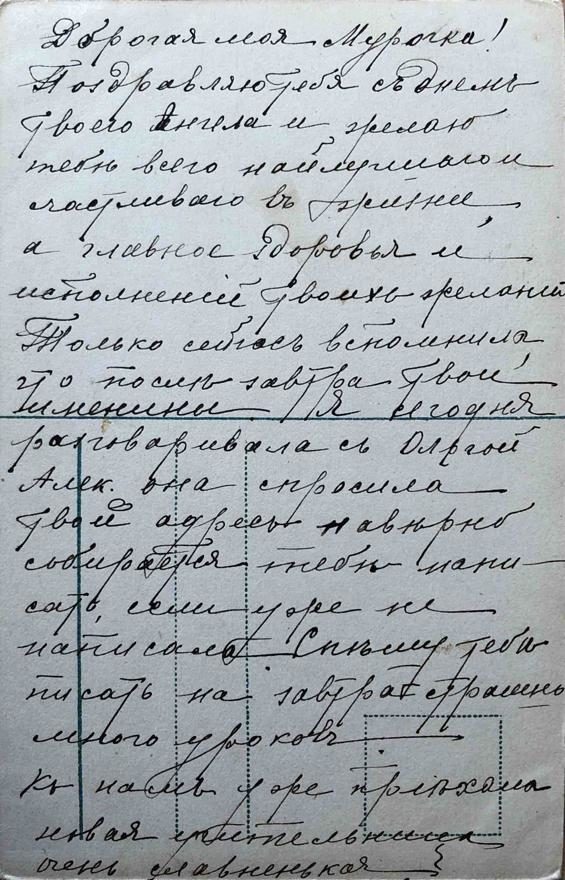 Дорогая моя Мурочка!
Поздравляю тебя съ днемъ
твоего Ангела и желаю
тебѣ всего найлучшаго и
счастливаго въ жизни,
а главное здоровья и
исполненій твоихъ желаній
Только сейчасъ вспомнила
что послѣ завтра твои
именины. Я сегодня
разговаривала съ Ольгой
Алек. она спросила
твой адресъ навѣрно
собирается тебѣ напи-
сать, если уже не
написала. Спѣшу тебѣ
писать на завтра страшно
много уроковъ
Къ намъ уже пріѣхала
новая учительница
очень славненькая